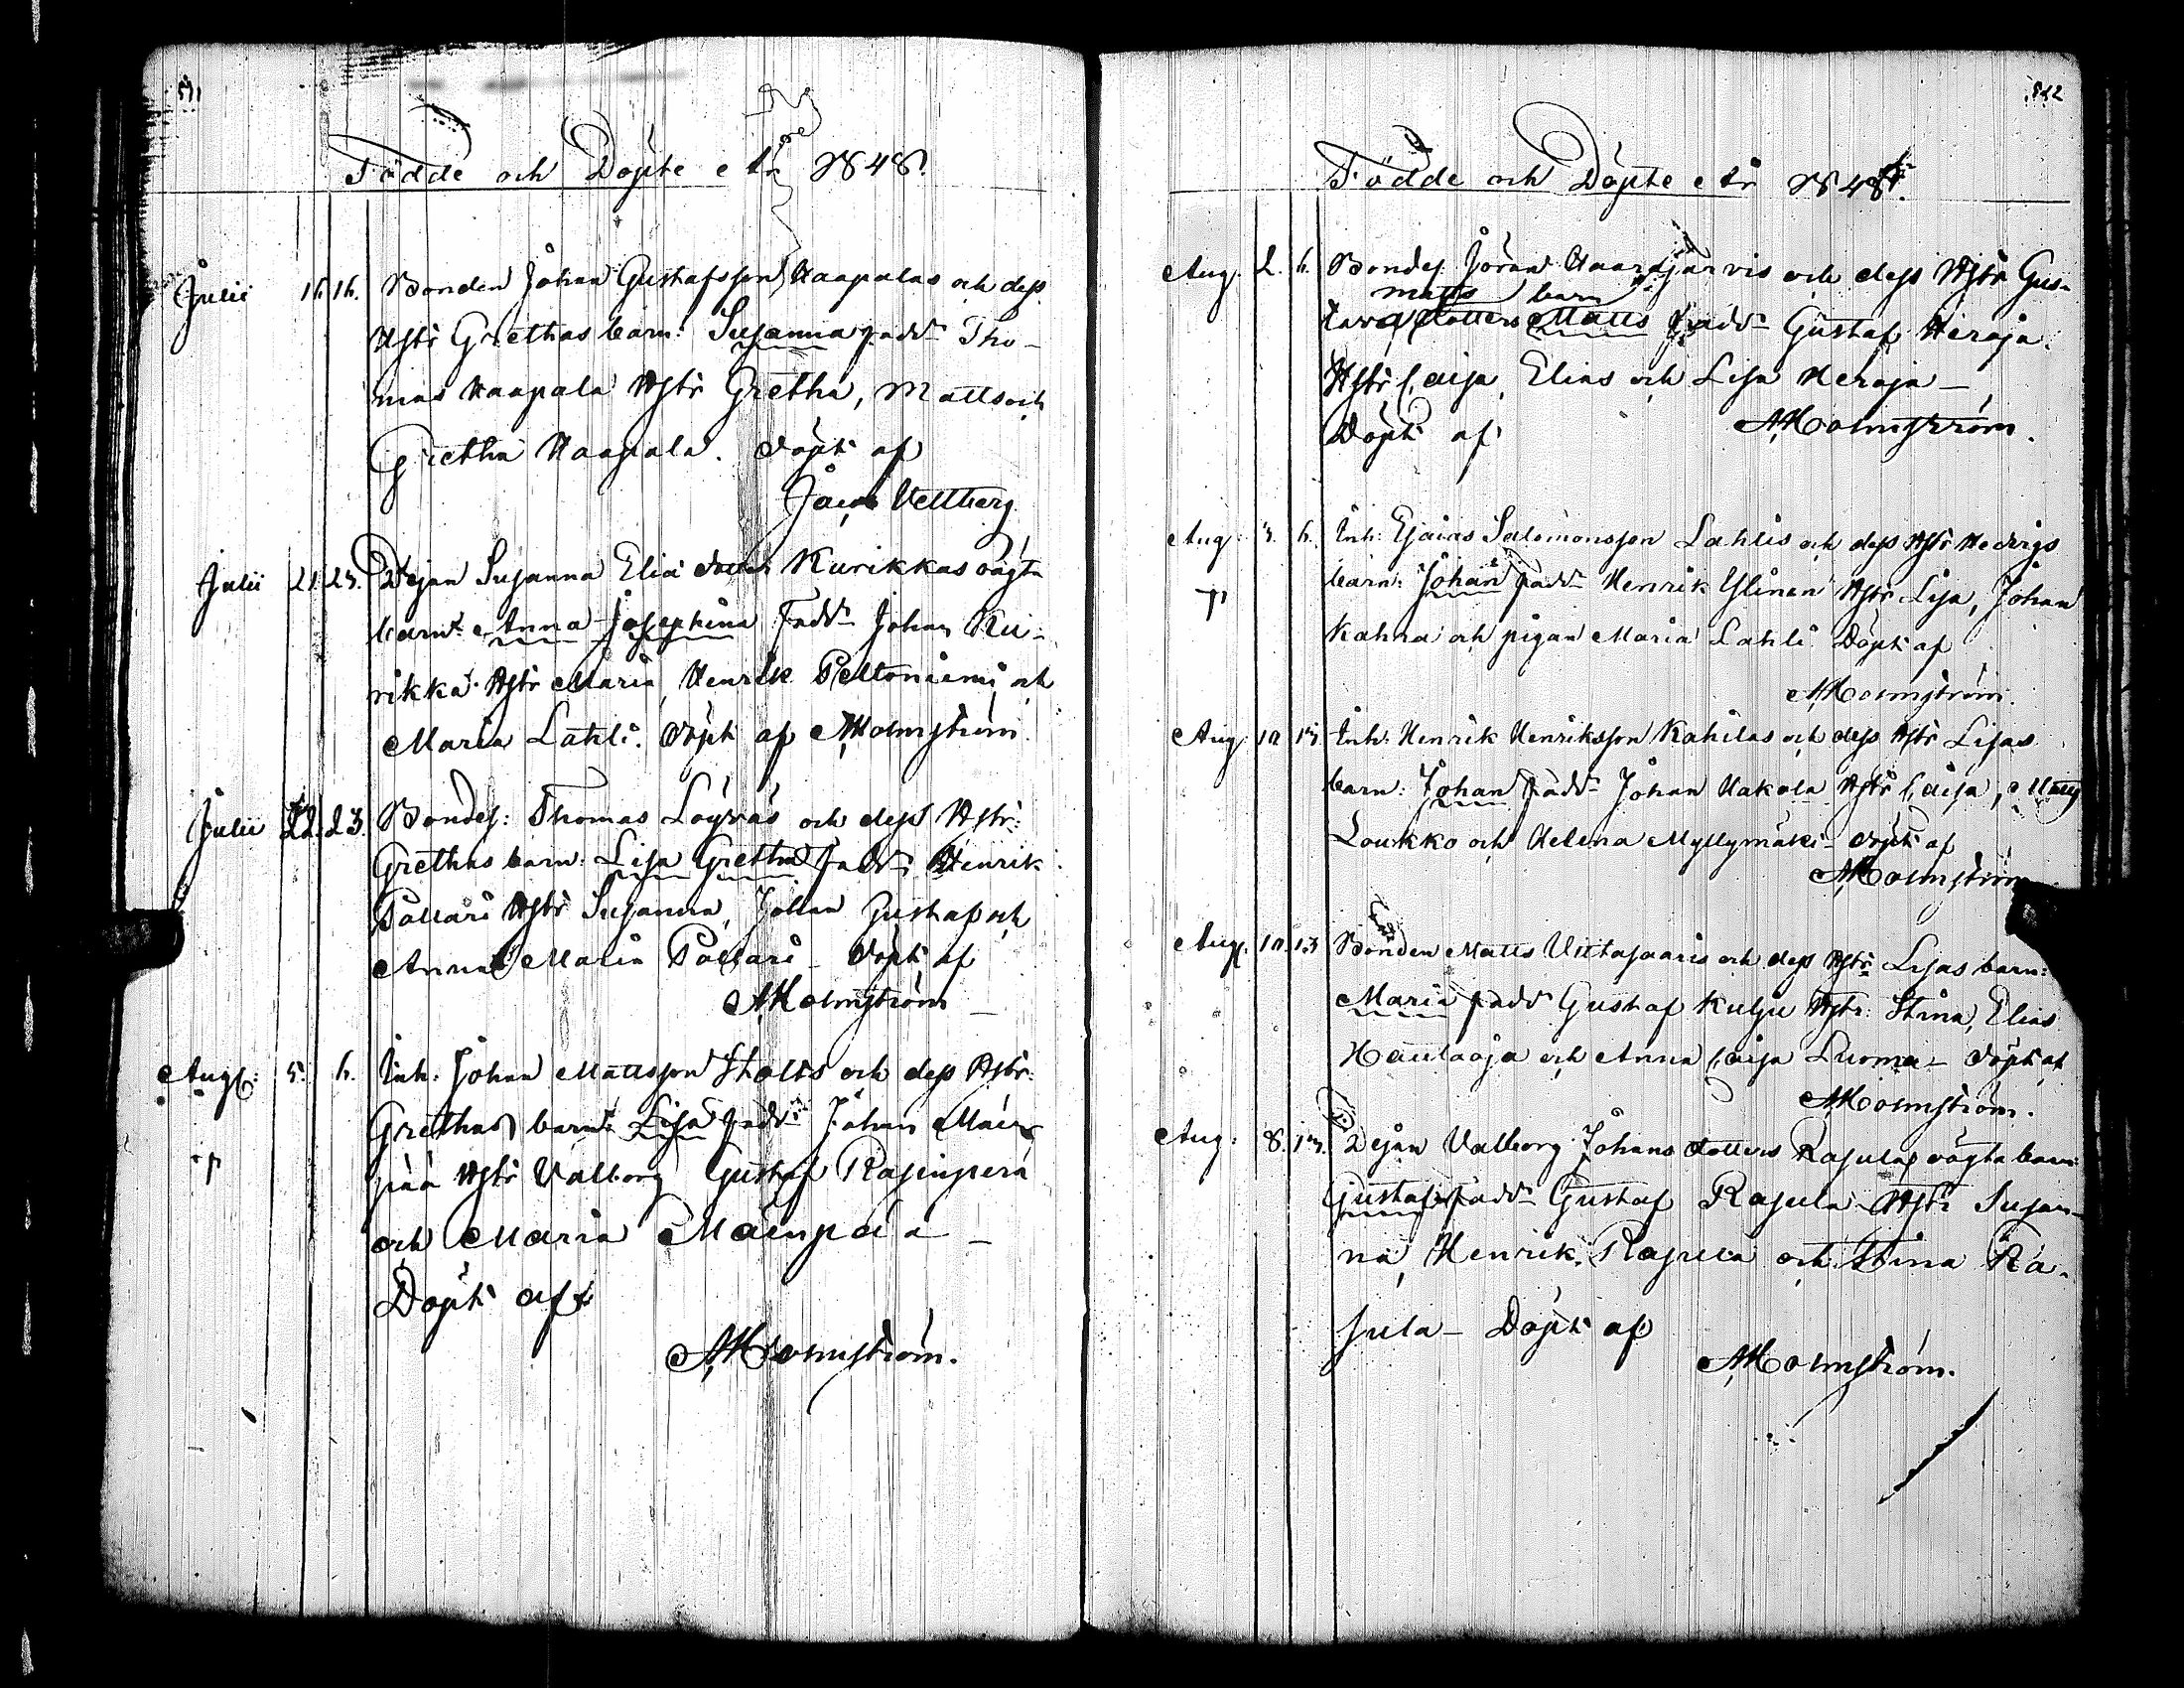 511
Födde och Döpte år 1848.
Julii 16. 16. Bonden Johan Gustafsson Haapalas och dess
Hstr Grethas barn: Susanna fadd: Tho-
mas Haapala Hstr Gretha, Matts och
Gretha Haapala. döpt af
Jacob Vellberg
Julii 21. 23. Dejan Susanna Elia dotters Kurikkas oägta
barn: Anna Josephina Fadd: Johan Ku-
rikka Hstr Maria, Henrik Peltoniemi och
Maria Lahti. döpt af AHolmström
Julii 22. 23. Bondes: Thomas Löyväs och dess Hstr:
Grethas barn: Lisa Gretha fadd: Henrik
Pollari Hstr Susanna, Johan Gustaf och
Anna Maria Pollari – döpt af
AHolmström –
Aug: 5. 6. Inh: Johan Mattsson Stolts och dess Hstr:
Grethas barn: Lisa fadd: Johan Mäen-
pää Hstr Valborg Gustaf Rasinperä
och Maria Mäenpää –
Döpt af
AHolmström.
512
Födde och Döpte år 1848.
Aug. 2. 6. Bondes Jöran Haarajärvis och dess Hstr Gus-
Matts barn
tava dotters Matts fadd: Gustaf Heroja
Hstr Caisa, Elias och Lisa Heroja –
Döpt af AHolmström.
Aug: 3. 6. Inh: Esaias Salomonsson Lahtis och dess Hstr Hedvigs
barn: Johan fadd: Henrik Ylinen Hstr Lisa, Johan
Kahra och pigan Maria Lahti Döpt af
AHolmström.
Aug: 10 13. Inh: Henrik Henriksson Kahilas och dess Hstr Lisas
barn: Johan fadd: Johan Hakola Hstr Caisa, Matts
Loukko och Helena Myllymäki – döpt af
AHolmström
Aug: 10. 13 Bonden Matts Viitasaaris och dess Hstr Lisas barn:
Maria fadd Gustaf Kulju Hstr: Stina, Elias
Hautaoja och Anna Caisa Luoma – döpt af
AHolmström.
Aug: 8. 13. Dejan Valborg Johans dotters Rasulas oägta barn
Gustaf fadd: Gustaf Rasula Hstr Susan-
na, Henrik Rasula och Stina Ra-
sula – Döpt af
AHolmström.